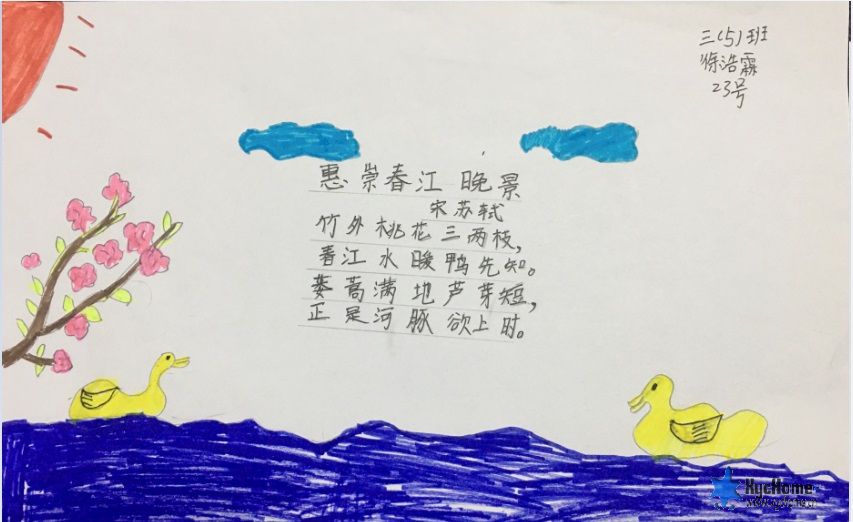 三(5)班
徐浩霖
23号
惠崇春江晚景
宋苏轼
竹外桃花三两枝，
春江水暖鸭先知。
蒌蒿满地芦芽短，
正是河豚欲上时。
HycHome